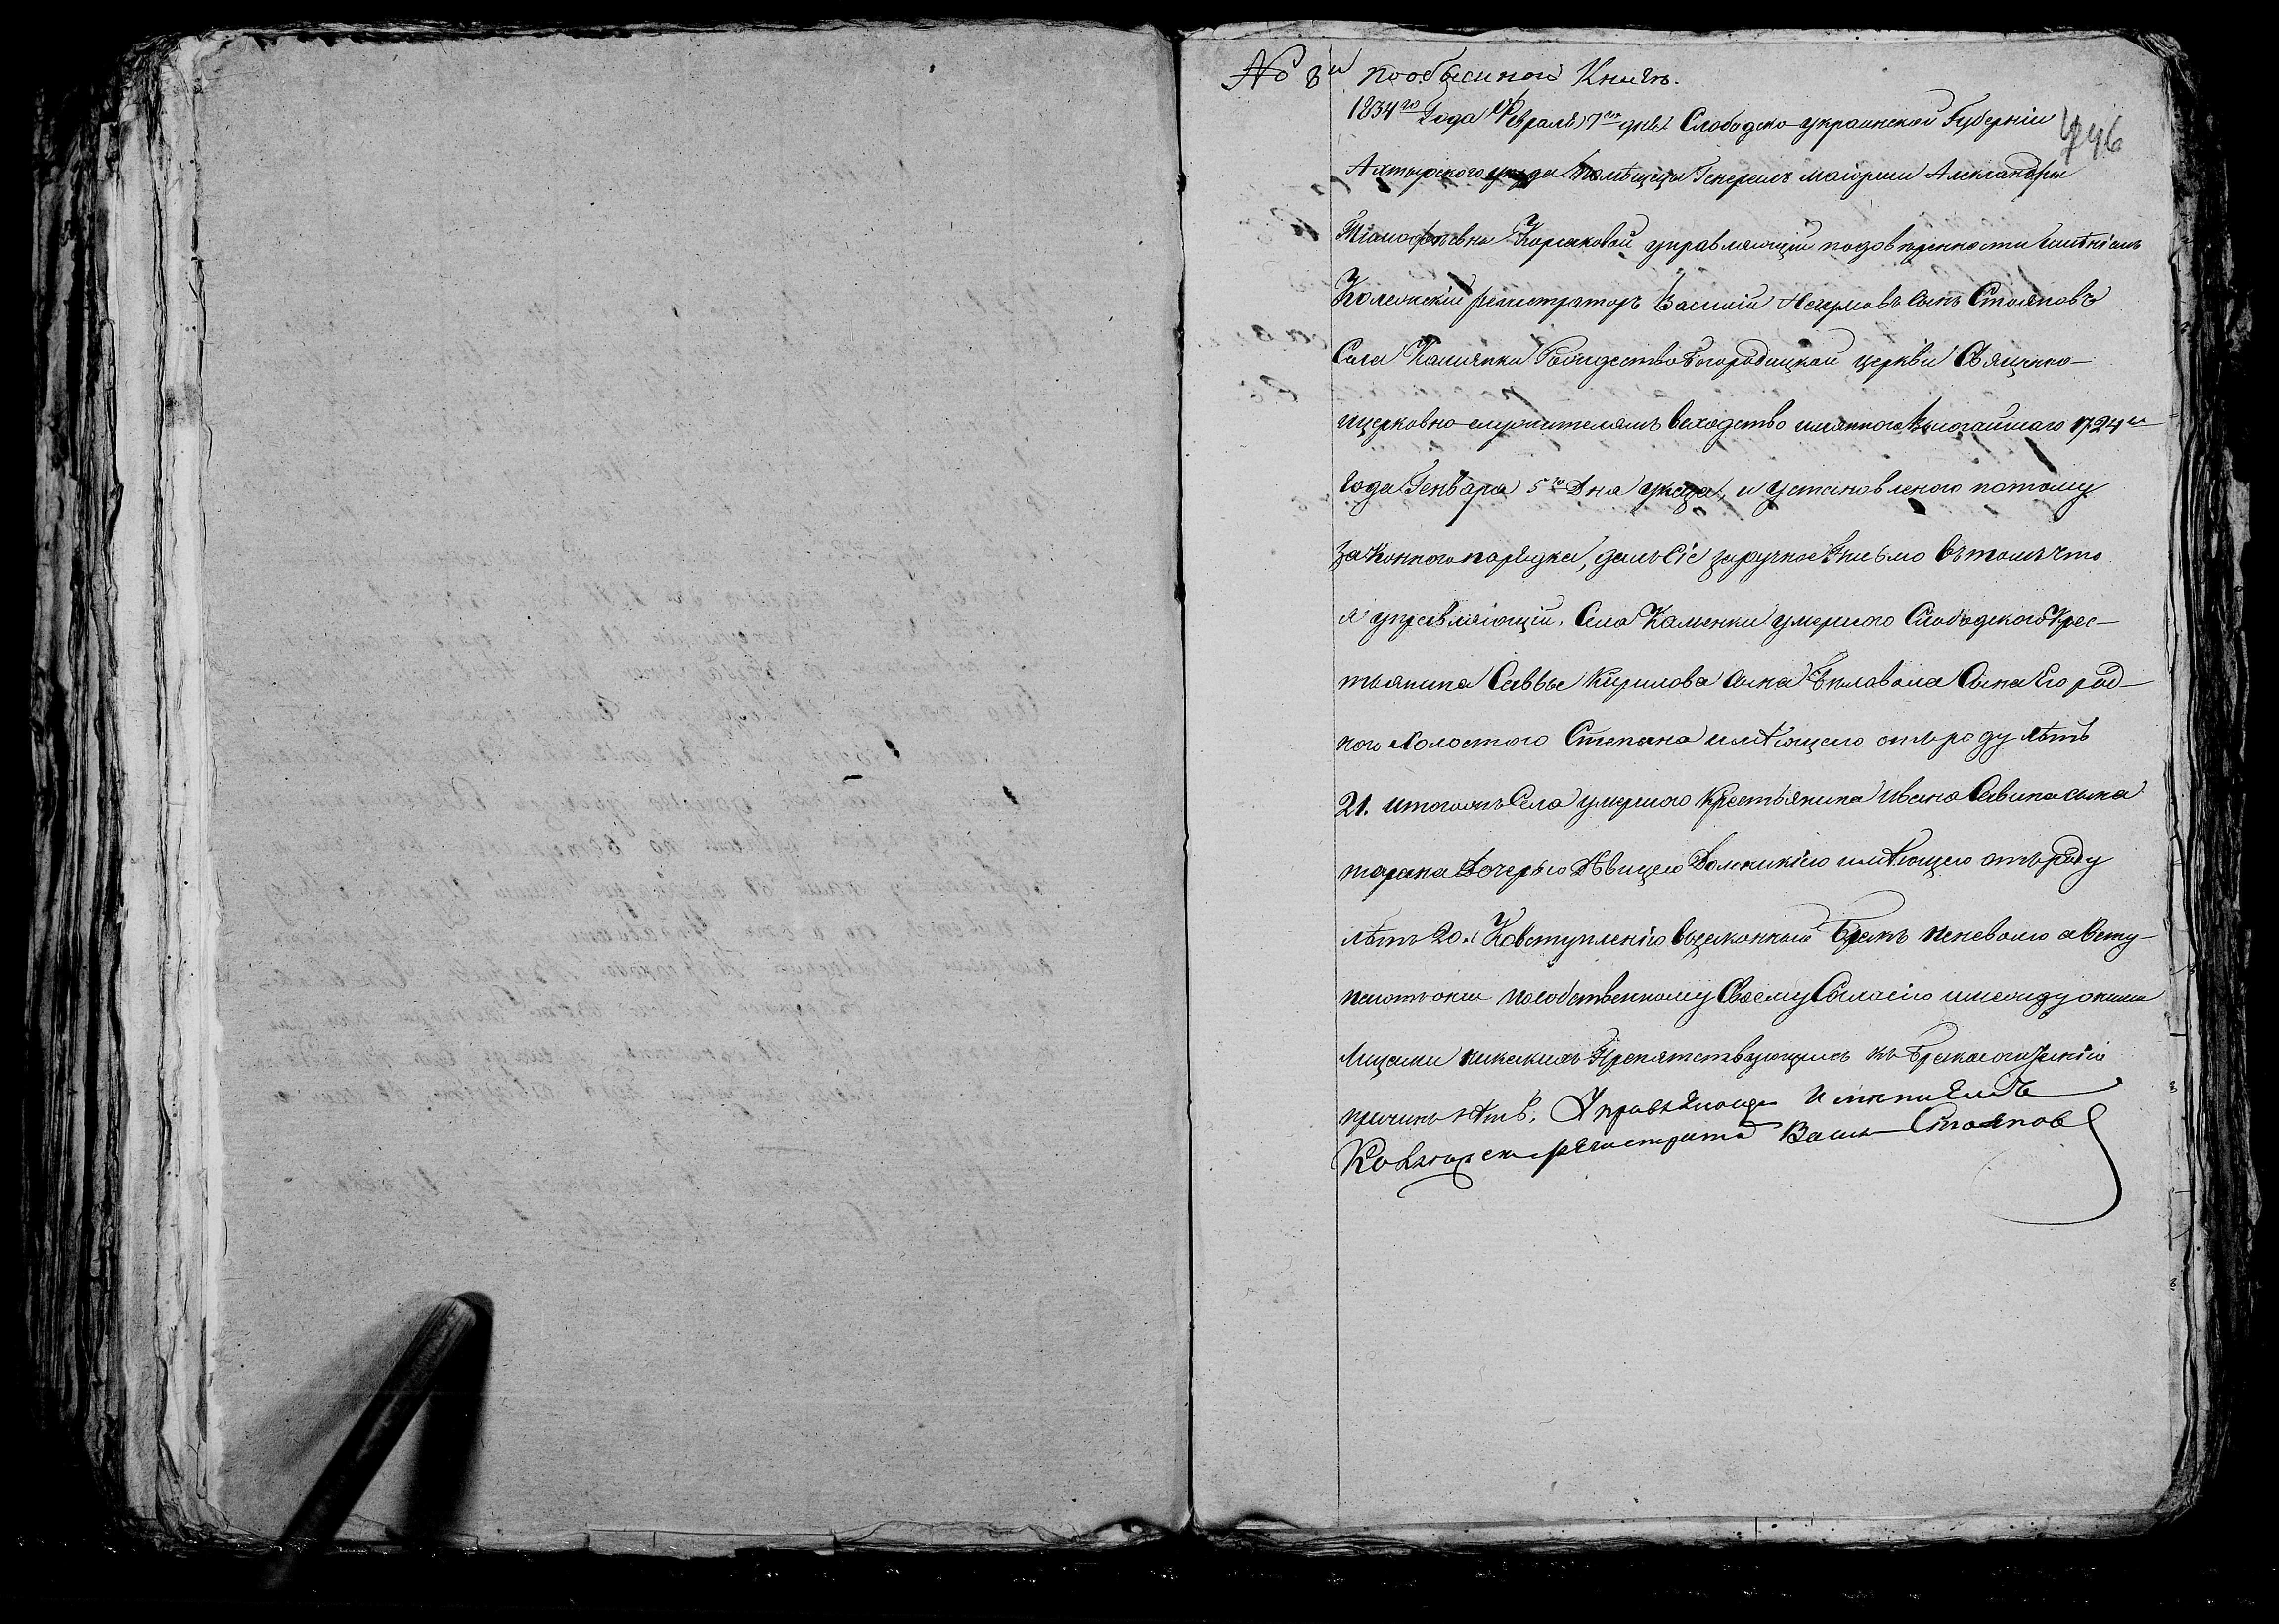 № 8й пообысной Книгѣ.
1834го Года Февраля 7го дня Слободско украинской Губерніи
446
Ахтырского уезда Помѣщицы Генералъ Маіорши Александры
Тимофѣевны Корсаковой управляющій подоверенности имѣніемъ
Колежскій регистраторъ Василій сынъ Стояновъ
Села Камянки Рождество Богородицкой церкви Священно-
ицерковно-служителямъ веходство имянного Высочайшаго 1724го
Года Генваря 5го Дня указа, и установленого потому
законного порядка, далъ Сіе заручное Письмо втомъ что
я управляющій, Села Каменки умершого Слободского Крес-
тьянина Саввы Кирилова сына сына Его род-
ного Холостого Степана имѣющего отъ роду лѣтъ
21. итогожъ Села умершого Крестьянина Ивана Савина сына
тарана Дочерью Дѣвицею Домникіею имѣющею отъ роду
лѣтъ 20. Ковступленію взаконный Бракъ неневолю австу-
паютъ они пособственному Своему Согласію имежду оными
Лицами никакихъ Препятствующихъ къ Бракосочетанію
причинъ нѣтъ. Управляющ Имениемъ
регистрато Васил Стоянов